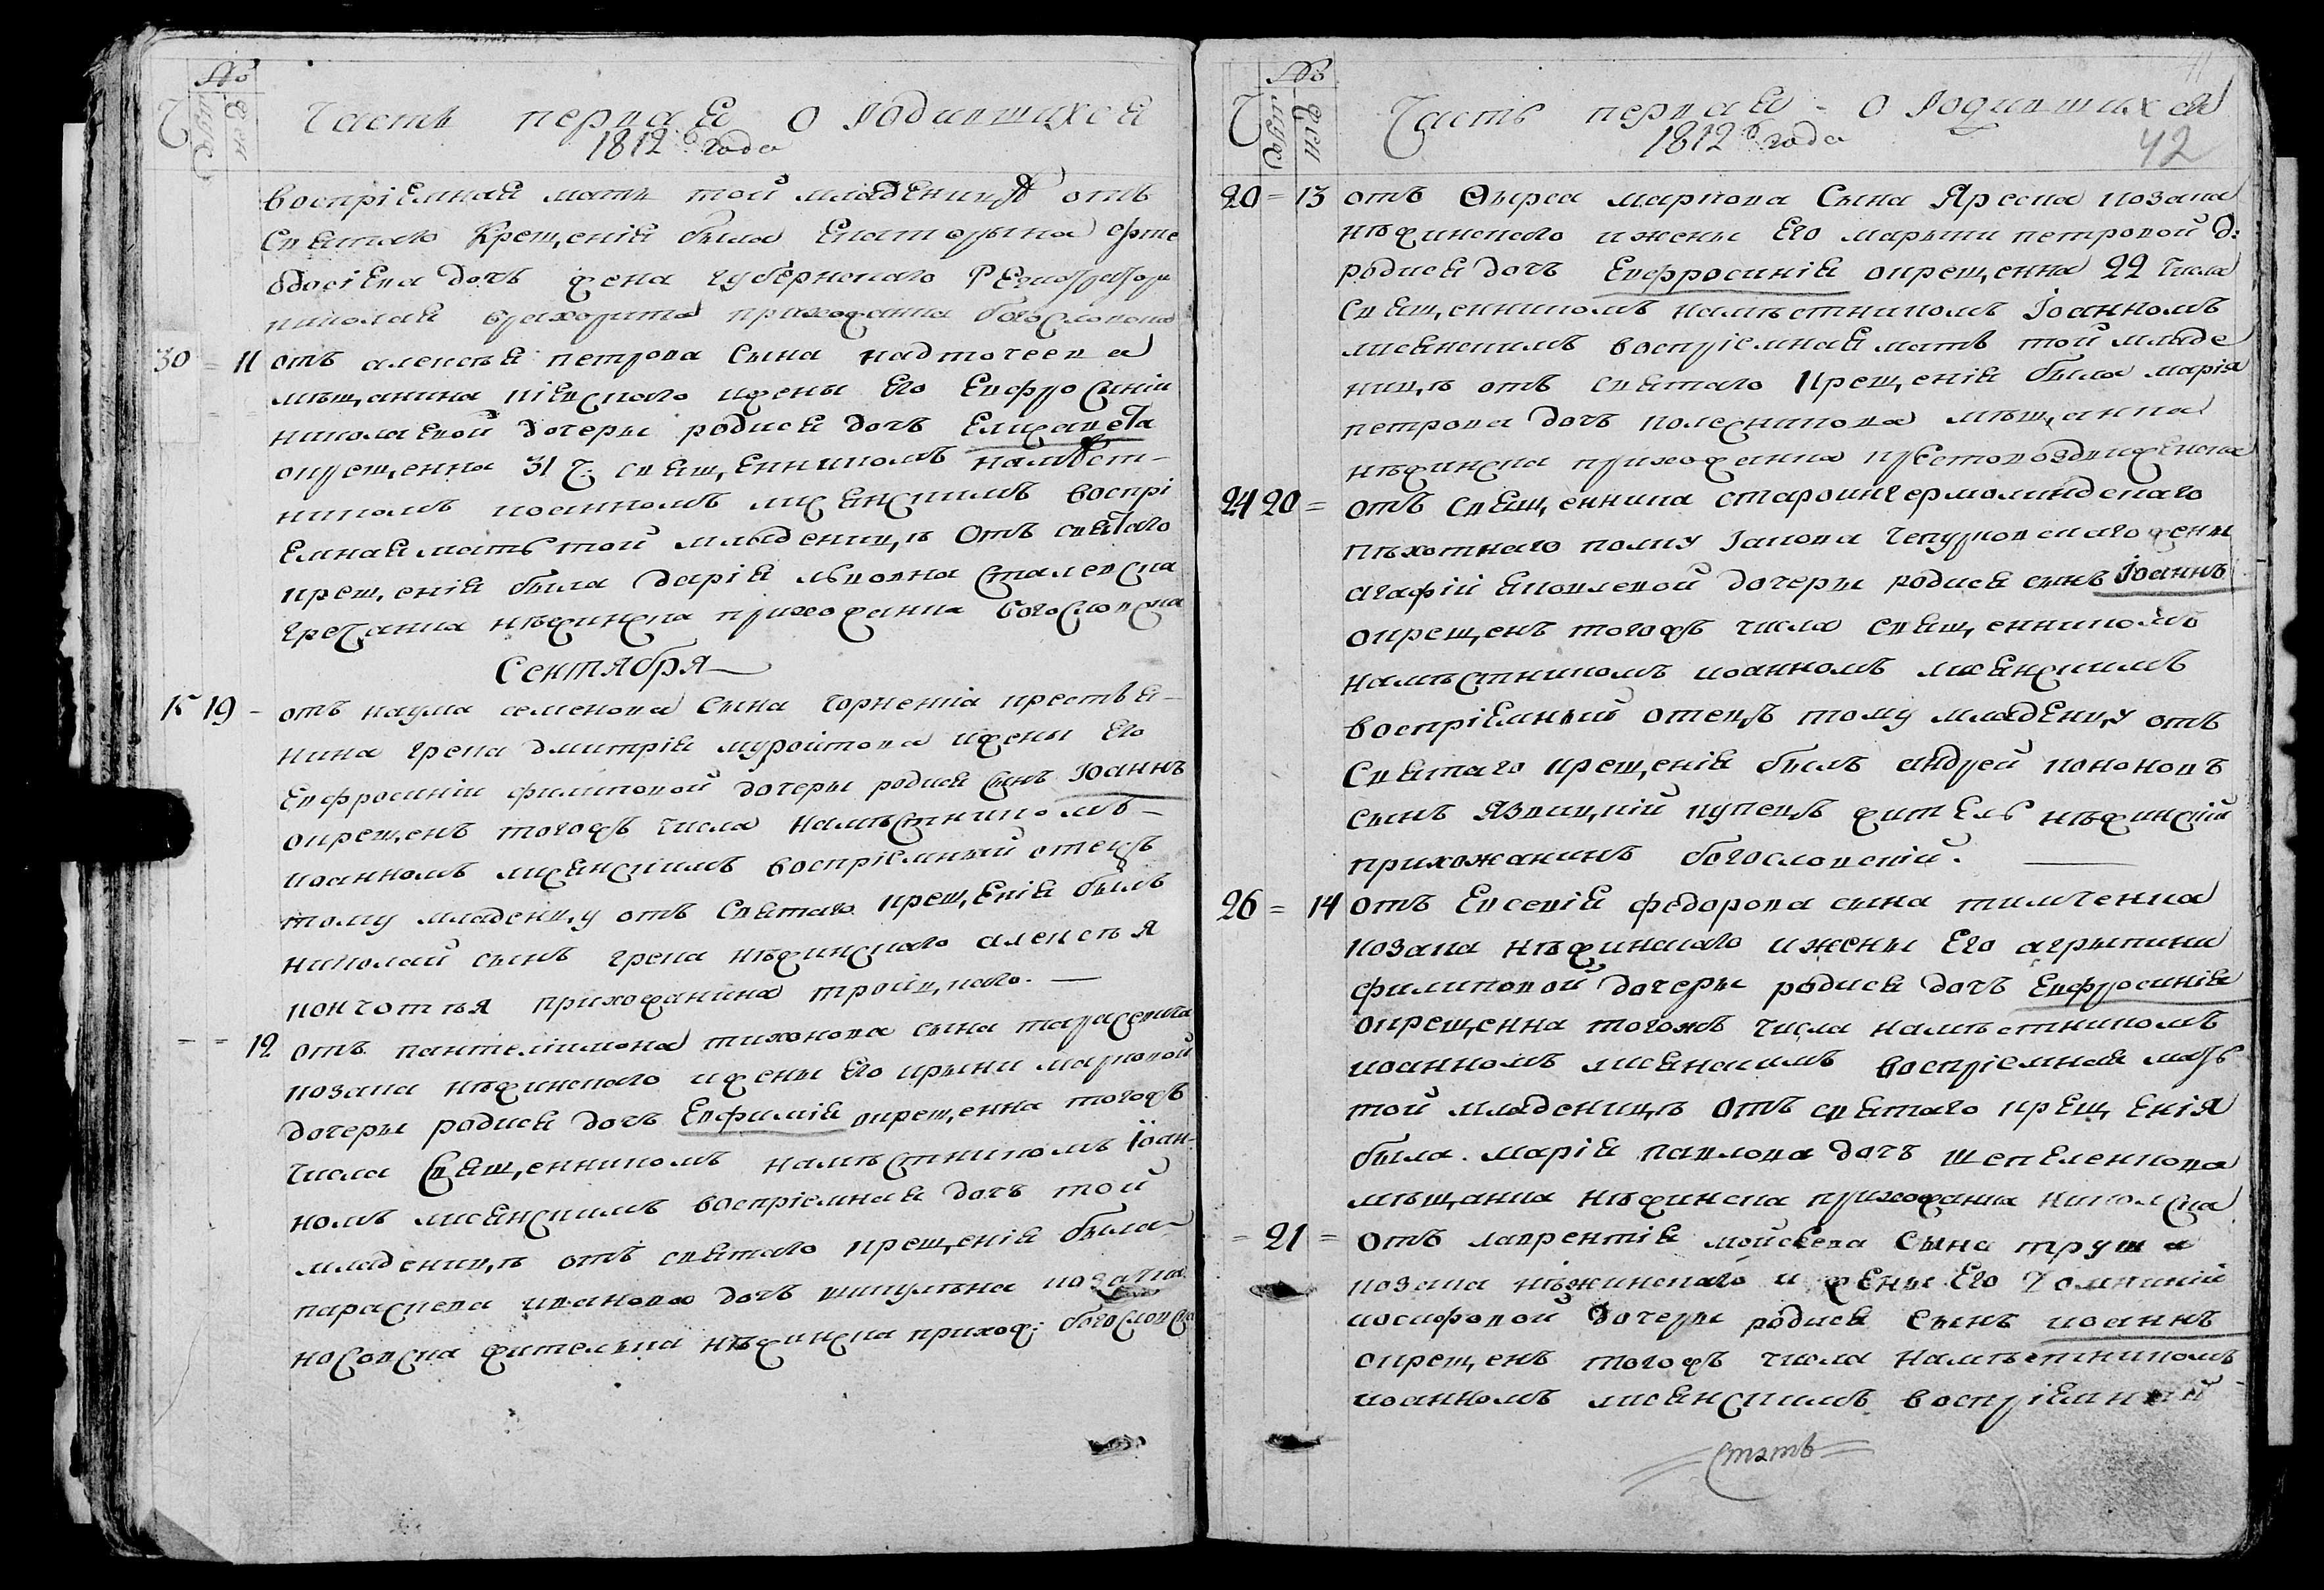 №
Ч
муж
жен
Часть первая О родившихся
1812 года
воспріемная мать той младеницѣ отъ
святаго крещенія была Екатерына Фте
одосіева дочъ жена губернскаго Регистратора
николая прихожанка богословска
30 = 11 отъ алексѣя петрова сына надточеева
мѣщанина кіевскаго ижены Его Евфросиніи
николаевой дочеры родися дочъ Елизавета
окрещенна 31 ч: священникомъ намѣст-
никомъ иоанномъ лисянскимъ воспрі
емная мать той младеницѣ Отъ святаго
крещенія была дарія львовна сталевска
гречанка нѣжинска прихожанка богословска
Сентября
15 19 - отъ наума семенова сына чорненка крестья-
нина грека дмитрія муройтова ижены Его
Евфросиніи филиповой дочеры родися сынъ Іоаннъ
окрещенъ тогожъ числа намѣстникомъ -
иоанномъ лисянскимъ воспріемный отецъ
тому младенцу отъ святаго крещенія былъ
николай сынъ грека нѣжинскаго алексѣя
кончотѣя прихожанина тройцкаго. —
- = 12 отъ пантелимона тихонова сына тарасевича
козака нѣжинскаго ижены Его ирыни марковой
дочеры родися дочъ Евфимія окрещенна тогожъ
числа священникомъ намѣстникомъ Іоан-
номъ лисянскимъ воспріемная дочъ той
младеницѣ отъ святаго крещенія была
параскева иванова дочъ шикулька козачка
носовска жителька нѣжинска прихож: богословска
№
Ч
муж
жен
Часть первая - О родившихся
1812 года
42
20 = 13 отъ Ѳирса маркова сына Яреска козака
нѣжинскаго ижены Его марыни петровой д:
родися дочъ Евфросинія окрещенна 22 числа
священникомъ намѣстникомъ Іоанномъ
лисянскимъ воспріемная мать той младе
ницѣ отъ святаго крещенія была марія
петрова дочъ колесникова мѣщанка
нѣжинска прихожанка крестовоздвиженска
24 20 = отъ священника староингермоландскаго
пѣхотнаго полку Іакова чепурковскаго жены
агафіи яковлевой дочеры родися сынъ Іоаннъ
окрещенъ тогожъ числа священникомъ
намѣстникомъ иоанномъ лисянскимъ
воспріемный отецъ тому младенцу отъ
святаго крещенія былъ андрей кононовъ
сынъ Язвицкій купецъ житель нѣжинскій
прихожанинъ богословскій. —
26 = 14 отъ Евсевія федорова сына тимченка
козака нѣжинскаго ижены Его агрыпини
филиповой дочеры родися дочъ Евфросинія
окрещенна тогожъ числа намѣстникомъ
иоанномъ лисянскимъ воспріемная мать
той младеницѣ Отъ святаго крещенія
была марія павлова дочъ шепеленкова
мѣщанка нѣжинска прихожанка никольска
- 21 = отъ лаврентія мойсеева сына труша
козака нѣжинскаго и жены Его домникіи
иосифовой дочеры родися сынъ иоаннъ
окрещенъ тогожъ числа намѣстникомъ
иоанномъ лисянскимъ воспріемный